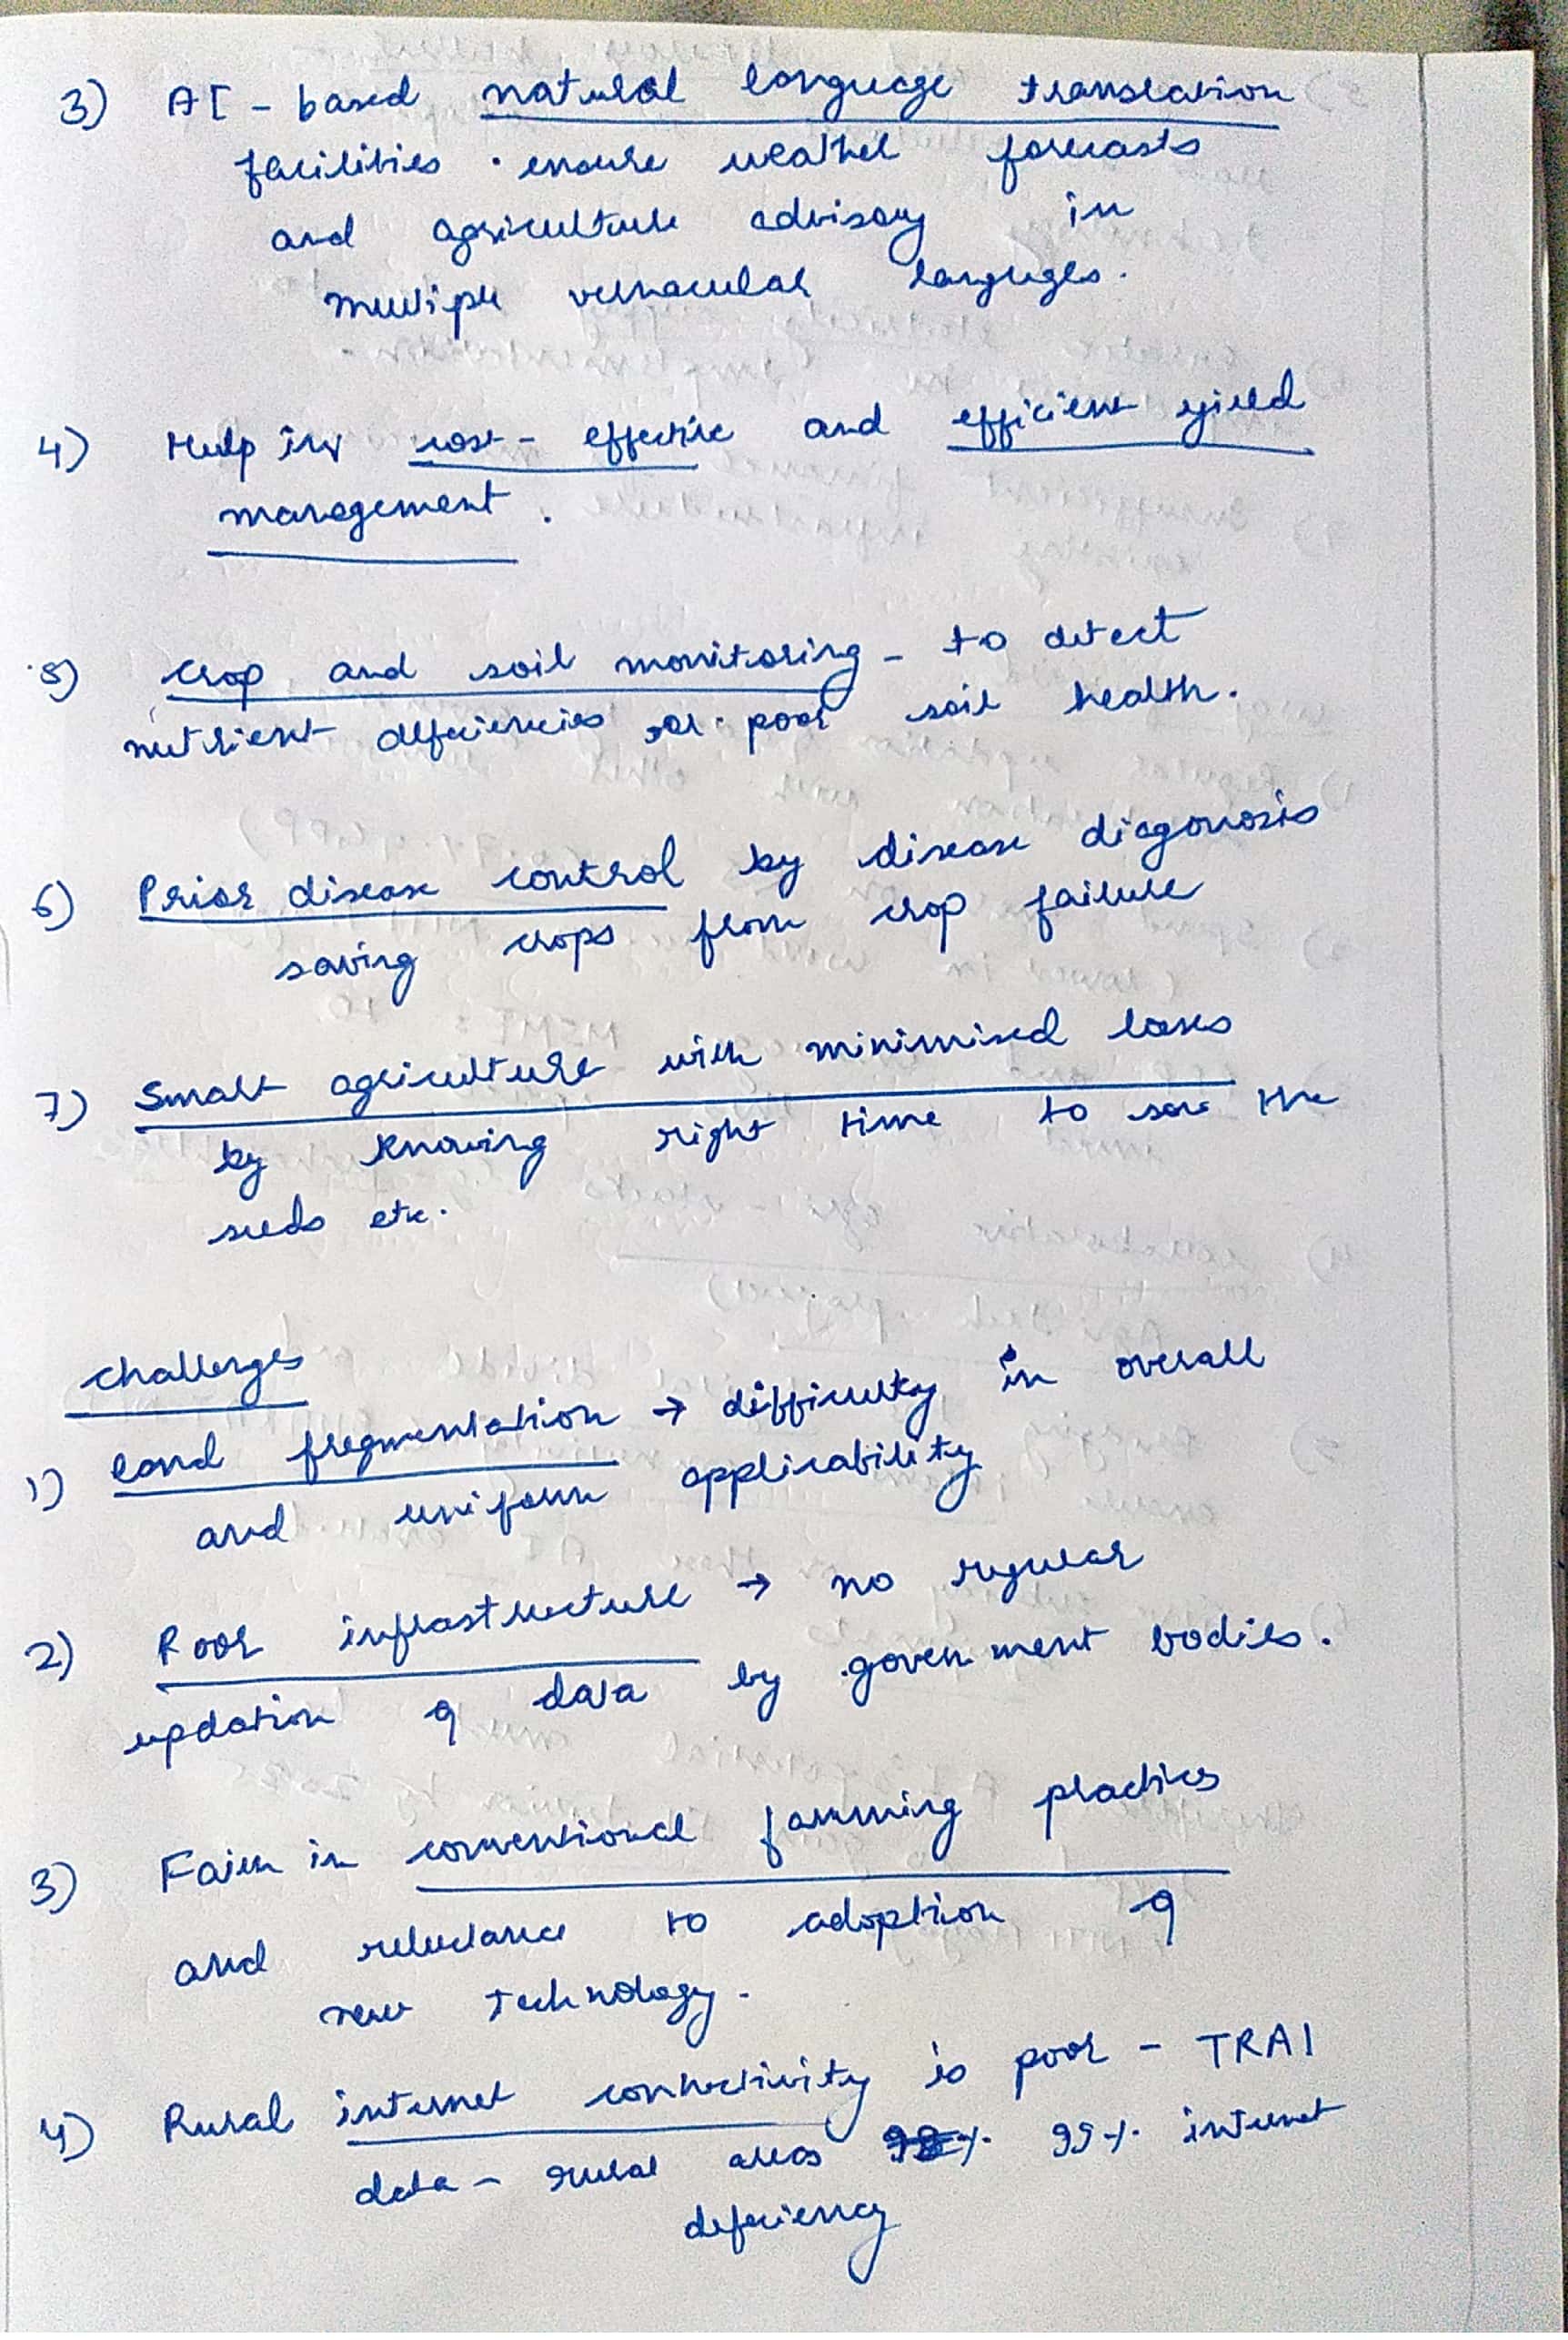 3) AI - based natural language translation
facilities ensure weather forecasts
and agriculture advisory in
multiple vernacular languages.
4) Help in cost - effective and efficient yield
management.
5) Crop and soil monitoring - to detect
nutrient deficiencies or poor soil health.
6) Prior disease control by disease diagonosis
saving crops from crop failure
7) Smart agriculture with minimised losses
by knowing right time to sow the
seeds etc.
Challenges
1) land fragmentation → difficulty in overall
and uniform applicability
2) Poor infrastructure → no regular
updation of data by government bodies.
3) Faith in conventional farming practices
and reluctance to adoption of
new technology.
4) Rural internet connectivity is poor - TRAI
data - rural areas 99%. internet
deficiency